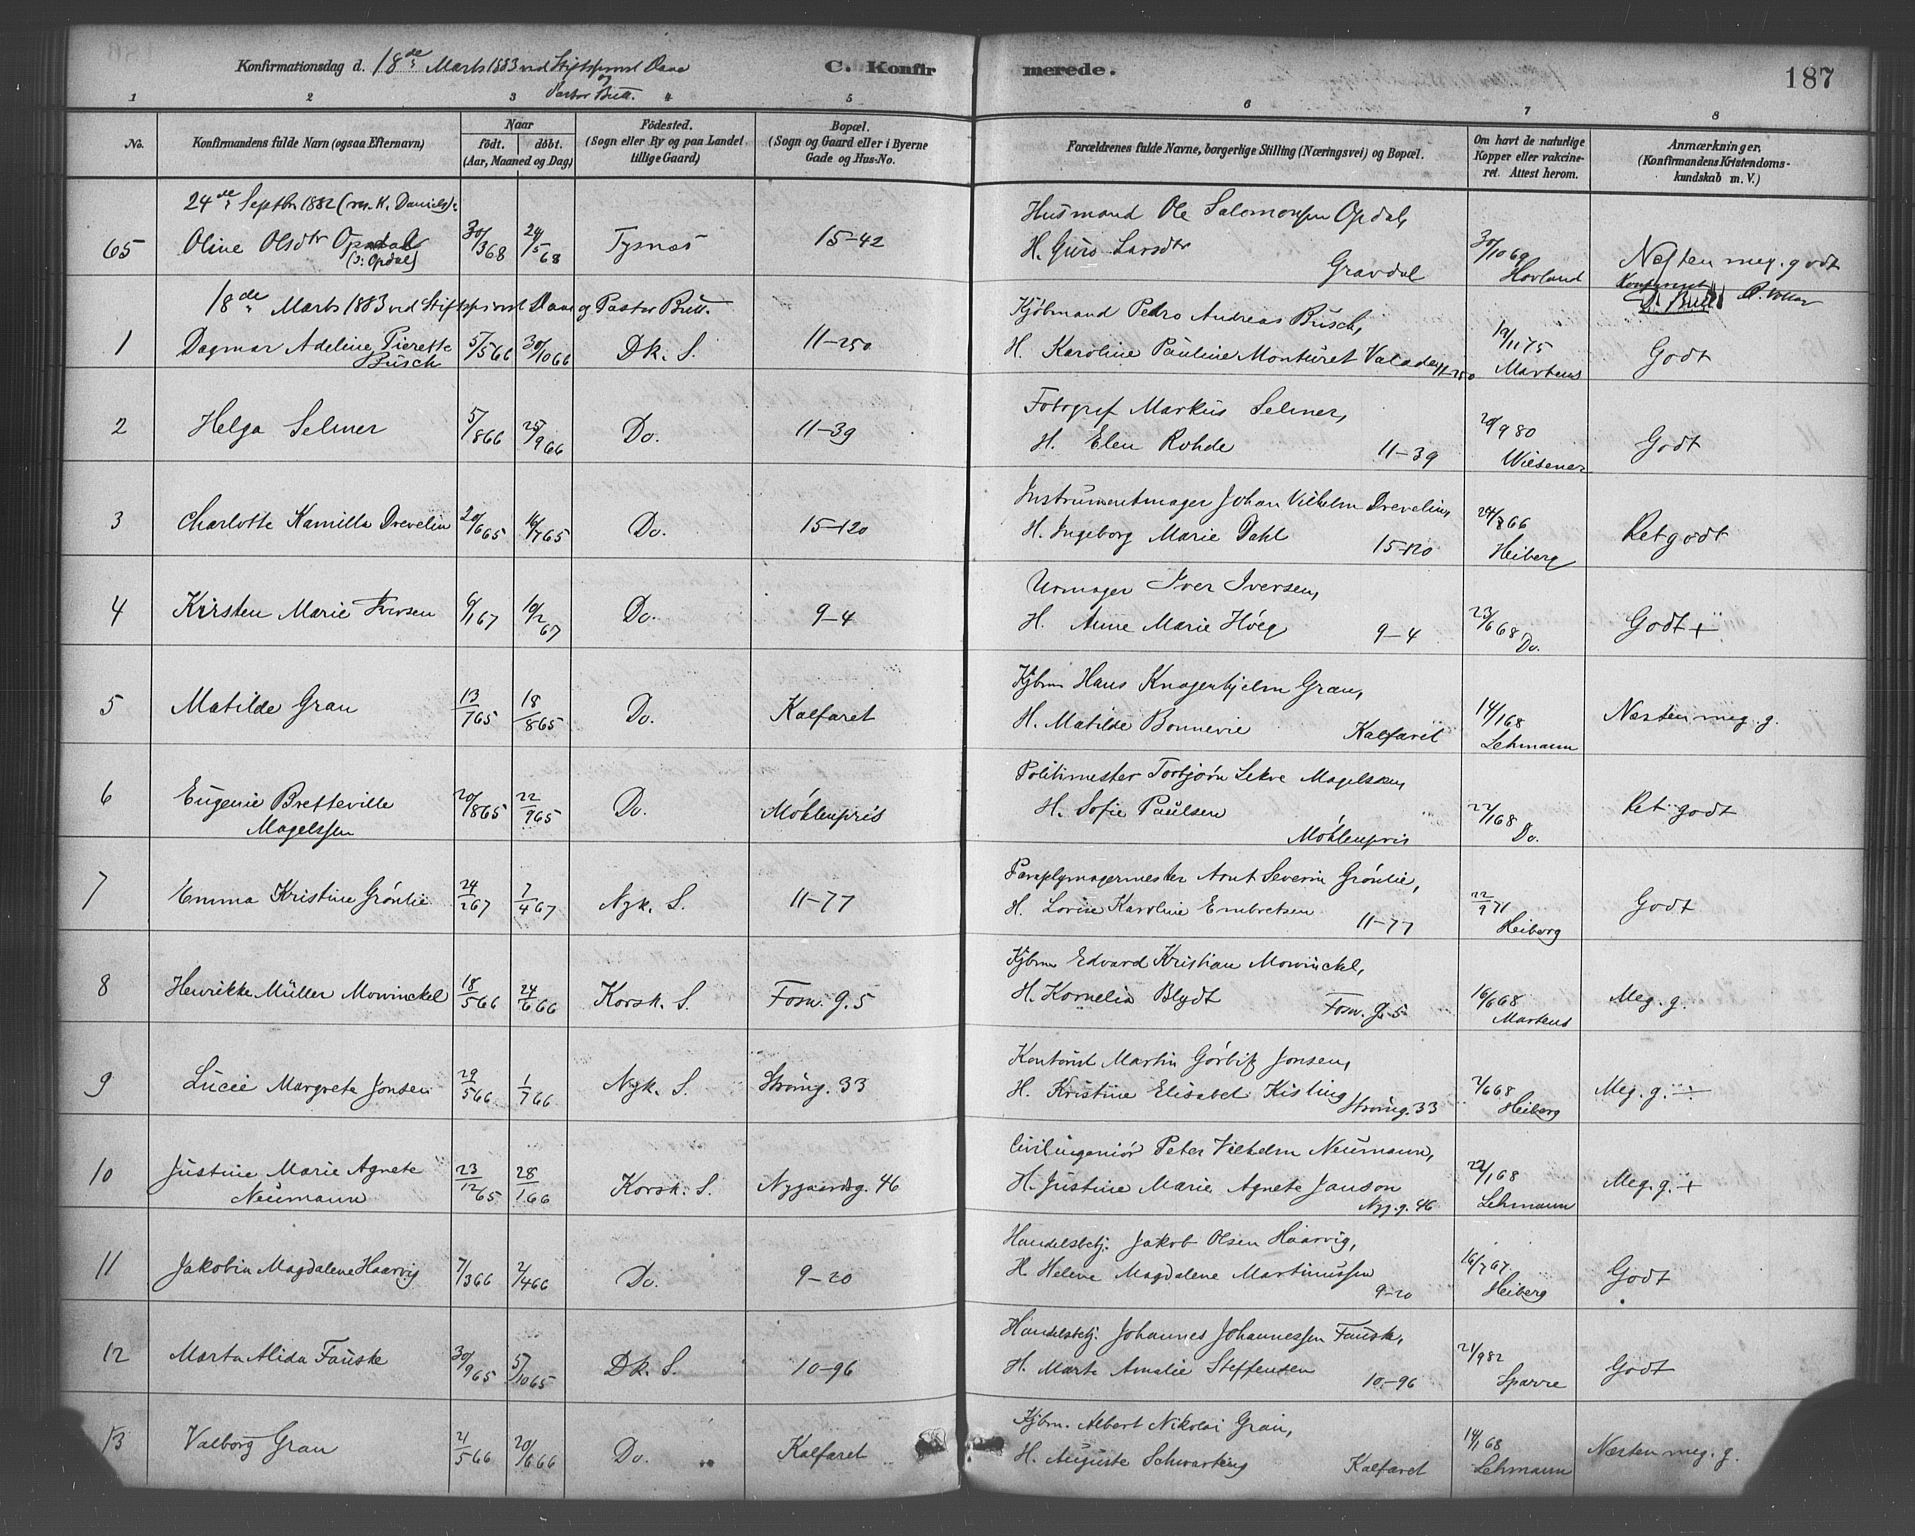 Konfirmationsdag d. 18de Marts 1883 ved Stiftsprovst Daae
og
Pastor Bull.
C. Konfirmerede.
187
1 2 3 4 5 6 7 8
No.
Konfirmandens fulde Navn (ogsaa Efternavn)
Naar
födt. döbt.
(Aar, Maaned og Dag)
Födested.
(Sogn eller By og paa Landet
tillige Gaard)
Bopæl.
(Sogn og Gaard eller i Byerne
Gade og Hus-No.
Forældrenes fulde Navne, borgerlige Stilling (Næringsvei) og Bopæl.
Om havt de naturlige
Kopper eller vakcine-
ret. Attest herom.
Anmærkninger.
(Konfirmandens Kristendoms-
kundskab m. V.)
24de Septbr 1882 (res. K. Daniels):
65 Oline Olsdtr Opdal 30/3 68 24/5 68 Tysnæs 15-42
(ɔ: Opdal)
Husmand Ole Salomonsen Opdal,
H. Guro Larsdtr
Gravdal
30/10 69 Hovland
Næsten meg. godt
Konfirmeret
D. Bull
18de Marts 1883 ved Stiftsprovst Daae og Pastor Bull.
1 Dagmar Adeline Pierette Busch 5/5 66 30/10 66 Dk. S. 11-250
Kjøbmand Pedro Andreas Busch,
H. Karoline Pauline Monturet Valadey 11-250
19/11 75 Martens
Godt
2 Helga Selmer 5/8 66 25/9 66 Do. 11-39
Fotogref Markus Selmer,
H. Elen Rohde 11-39
20/9 80 Wiesener
Godt
3 Charlotte Kamilla Drevelin 20/6 65 16/7 65 Do. 15-120
Instrumentmager Johan Vilhelm Drevelin,
H. Ingeborg Marie Dahl 15-120
24/8 66 Heiberg
Ret godt
4 Kirsten Marie Iversen 6/1 67 10/2 67 Do. 9-4
Urmager Iver Iversen,
H. Anne Marie Höeg 9-4
23/6 68 Do.
Godt +
5 Matilde Gran 13/7 65 18/8 65 Do. Kalfaret
Kjbm Hans Knagenhjelm Gran,
H. Matilde Bonnevie Kalfaret
14/1 68 Lehmann
Næsten meg. g.
6 Eugenie Bretteville 20/8 65 22/9 65 Do. Möhlenpris
Magelssen
Politimester Torbjörn Lekve Magelssen,
H. Sofie Paulsen
Möhlenpris
22/1 68 Do.
Ret godt
7 Emma Kristine Grönlie 24/2 67 7/4 67 Nyk. S. 11-77
Paraplymagermester Arnt Severin Grönlie,
H. Lovise Karoline Embretsen 11-77
22/9 71 Heiberg
Godt
8 Henrikke Müller Mowinckel 18/5 66 24/6 66 Korsk. S. Fosw. G. 5
Kjbm Edvard Kristian Mowinckel,
H. Kornelia Blydt Fosw. G. 5
16/6 68 Martens
Meg. g.
9 Lucie Margrete Jonsen 29/5 66 1/7 66 Nyk. S. Strömg. 33
Kontorist Martin Görbitz Jonsen,
H. Kristine Elisabet Kisling Strömg. 33
2/6 68 Heiberg
Meg. g. ÷
10 Justine Marie Agnete 23/12 65 28/1 66 Korsk. S. Nygaardsg. 46
Neumann
Civilingeniör Peter Vilhelm Neumann,
H. Justine Marie Agnete Janson
Nyg. g. 46
22/1 68 Lehmann
Meg. g. +
11 Jakobin Magdalene Haarvig 7/3 66 2/4 66 Do. 9-20
Handelsbetj. Jakob Olsen Haarvig,
H. Helene Magdalene Martinussen
9-20
16/7 67 Heiberg
Godt
12 Marta Alida Fauske 30/9 65 5/10 65 Dk. S. 10-96
Handelsbetj. Johannes Johannessen Fauske,
H. Marte Amalie Steffensen 10-96
21/9 82 Sparre
Godt
13 Valborg Gran 2/5 66 20/6 66 Do. Kalfaret
Kjbm. Albert Nikolai Gran,
H. Auguste Schwarting Kalfaret
14/1 68 Lehmann
Næsten meg. g.